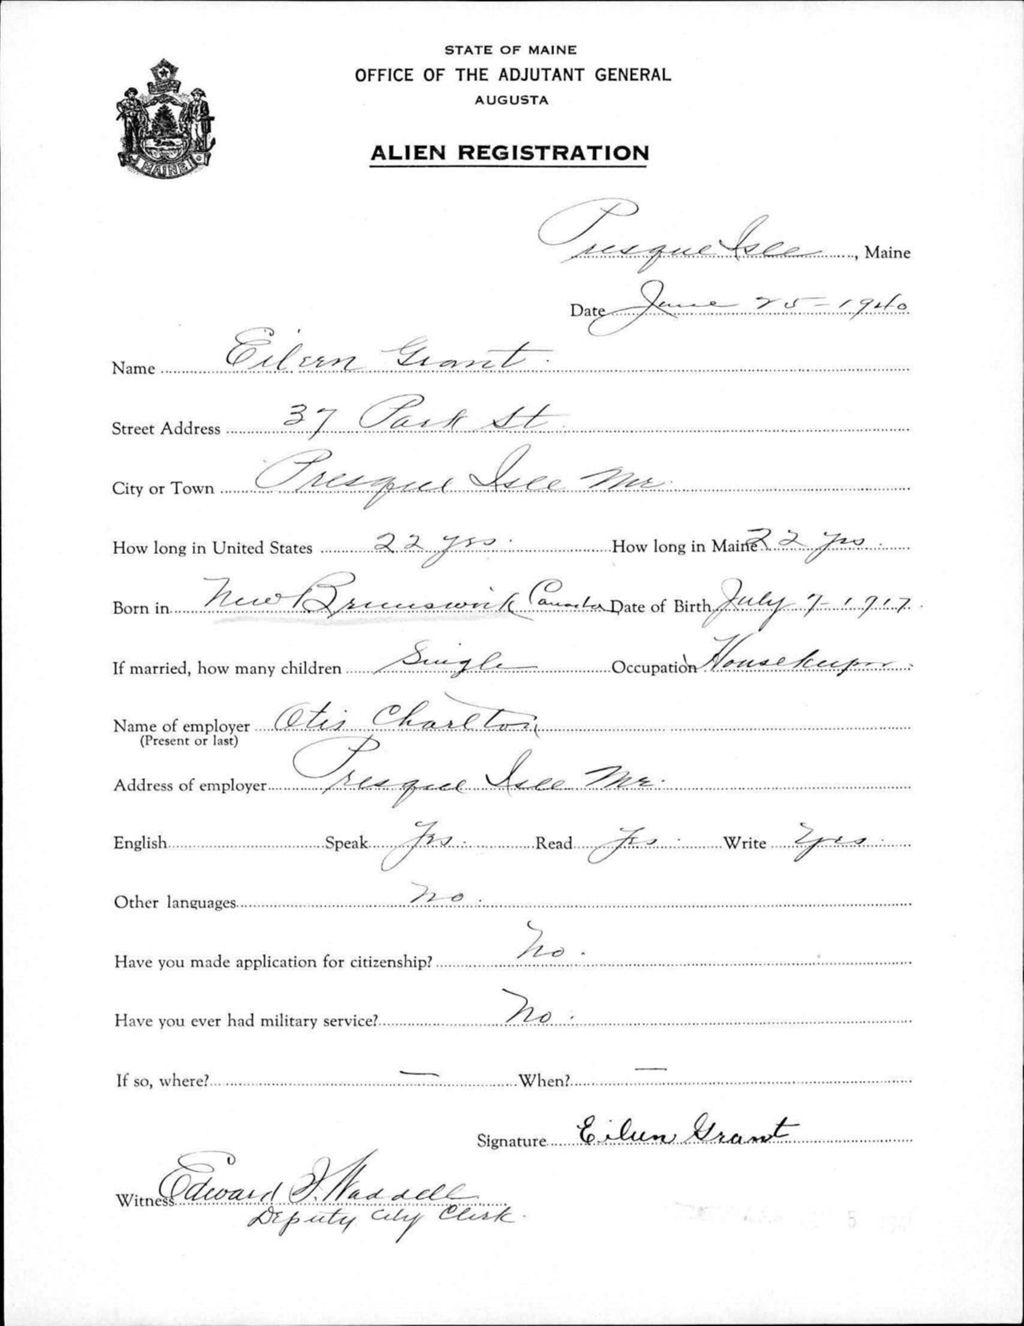 STATE OF MAINE
OFFICE OF THE ADJUTANT GENERAL
AUGUSTA
MAINE
ALIEN REGISTRATION
Presque Isle, Maine
Date June 25-1940
Name Eileen Grant.
Street Address 37 Park St.
City or Town Presque Isle Me.
How long in United States 22 yrs. How long in Maine 22 yrs.
Born in New Brunswick Canada Date of Birth July 7-1917.
If married, how many children Single Occupation Housekeeper.
Name of employer Otis Charlton
(Present or last)
Address of employer Presque Isle Me.
English Speak Yes. Read Yes. Write Yes.
Other languages No.
Have you made application for citizenship? No.
Have you ever had military service? No.
If so, where? — When? —
Signature Eileen Grant
Witness Edward F. Waddell
Deputy City Clerk.